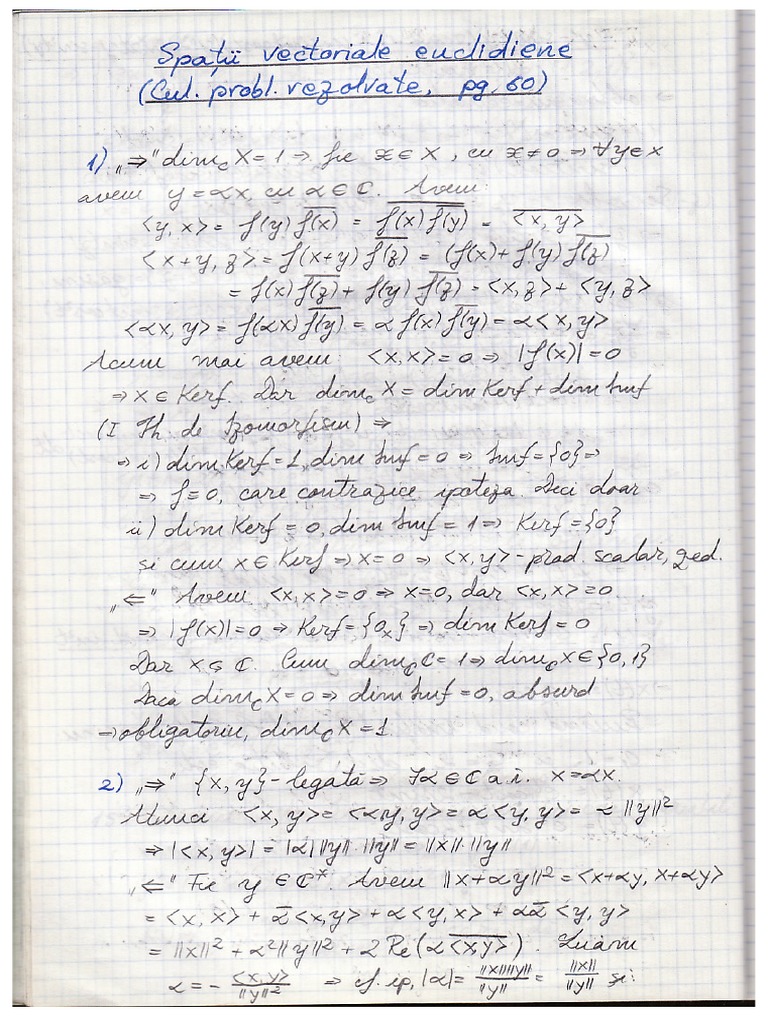 Spații vectoriale euclidiene
(Cul. probl. rezolvate, pg. 60)
1) „⇒” dim_ℂ X = 1 ⇒ fie x ∈ X, cu x ≠ 0 ⇒ ∀y ∈ X
avem y = αx, cu α ∈ ℂ. Avem:
<y, x> = f(y) \overline{f(x)} = \overline{f(x) \overline{f(y)}} = \overline{<x, y>}
<x+y, z> = f(x+y) \overline{f(z)} = (f(x) + f(y) \overline{f(z)}
= f(x) \overline{f(z)} + f(y) \overline{f(z)} = <x, z> + <y, z>
<αx, y> = f(αx) \overline{f(y)} = α f(x) \overline{f(y)} = α <x, y>
Acum mai avem: <x, x> = 0 ⇒ |f(x)| = 0
⇒ x ∈ Kerf. Dar dim_ℂ X = dim Kerf + dim Imf
(I Th. de Izomorfism) ⇒
⇒ i) dim Kerf = 1, dim Imf = 0 ⇒ Imf = {0} ⇒
⇒ f = 0, care contrazice ipoteza. Deci doar
ii) dim Kerf = 0, dim Imf = 1 ⇒ Kerf = {0}
și cum x ∈ Kerf ⇒ x = 0 ⇒ <x, y> - prod. scalar, qed.
„⇐” Avem <x, x> = 0 ⇒ x = 0, dar <x, x> = 0
⇒ |f(x)| = 0 ⇒ Kerf = {0_x} ⇒ dim Kerf = 0
Dar X ⊆ ℂ. Cum dim_ℂ ℂ = 1 ⇒ dim_ℂ X ∈ {0, 1}
Daca dim_ℂ X = 0 ⇒ dim Imf = 0, absurd
⇒ obligatoriu, dim_ℂ X = 1
2) „⇒” {x, y} - legată ⇒ ∃α ∈ ℂ a.î. x = αx.
Atunci <x, y> = <αy, y> = α <y, y> = α ||y||²
⇒ |<x, y>| = |α| ||y|| · ||y|| = ||x|| · ||y||
„⇐” Fie y ∈ ℂ*. Avem ||x + αy||² = <x + αy, x + αy>
= <x, x> + \overline{α} <x, y> + α <y, x> + α\overline{α} <y, y>
= ||x||² + α² ||y||² + 2 Re(α \overline{<x, y>}). Luăm
α = - <x, y> / ||y||² ⇒ cf. ip, |α| = ||x|| ||y|| / ||y||² = ||x|| / ||y|| și: